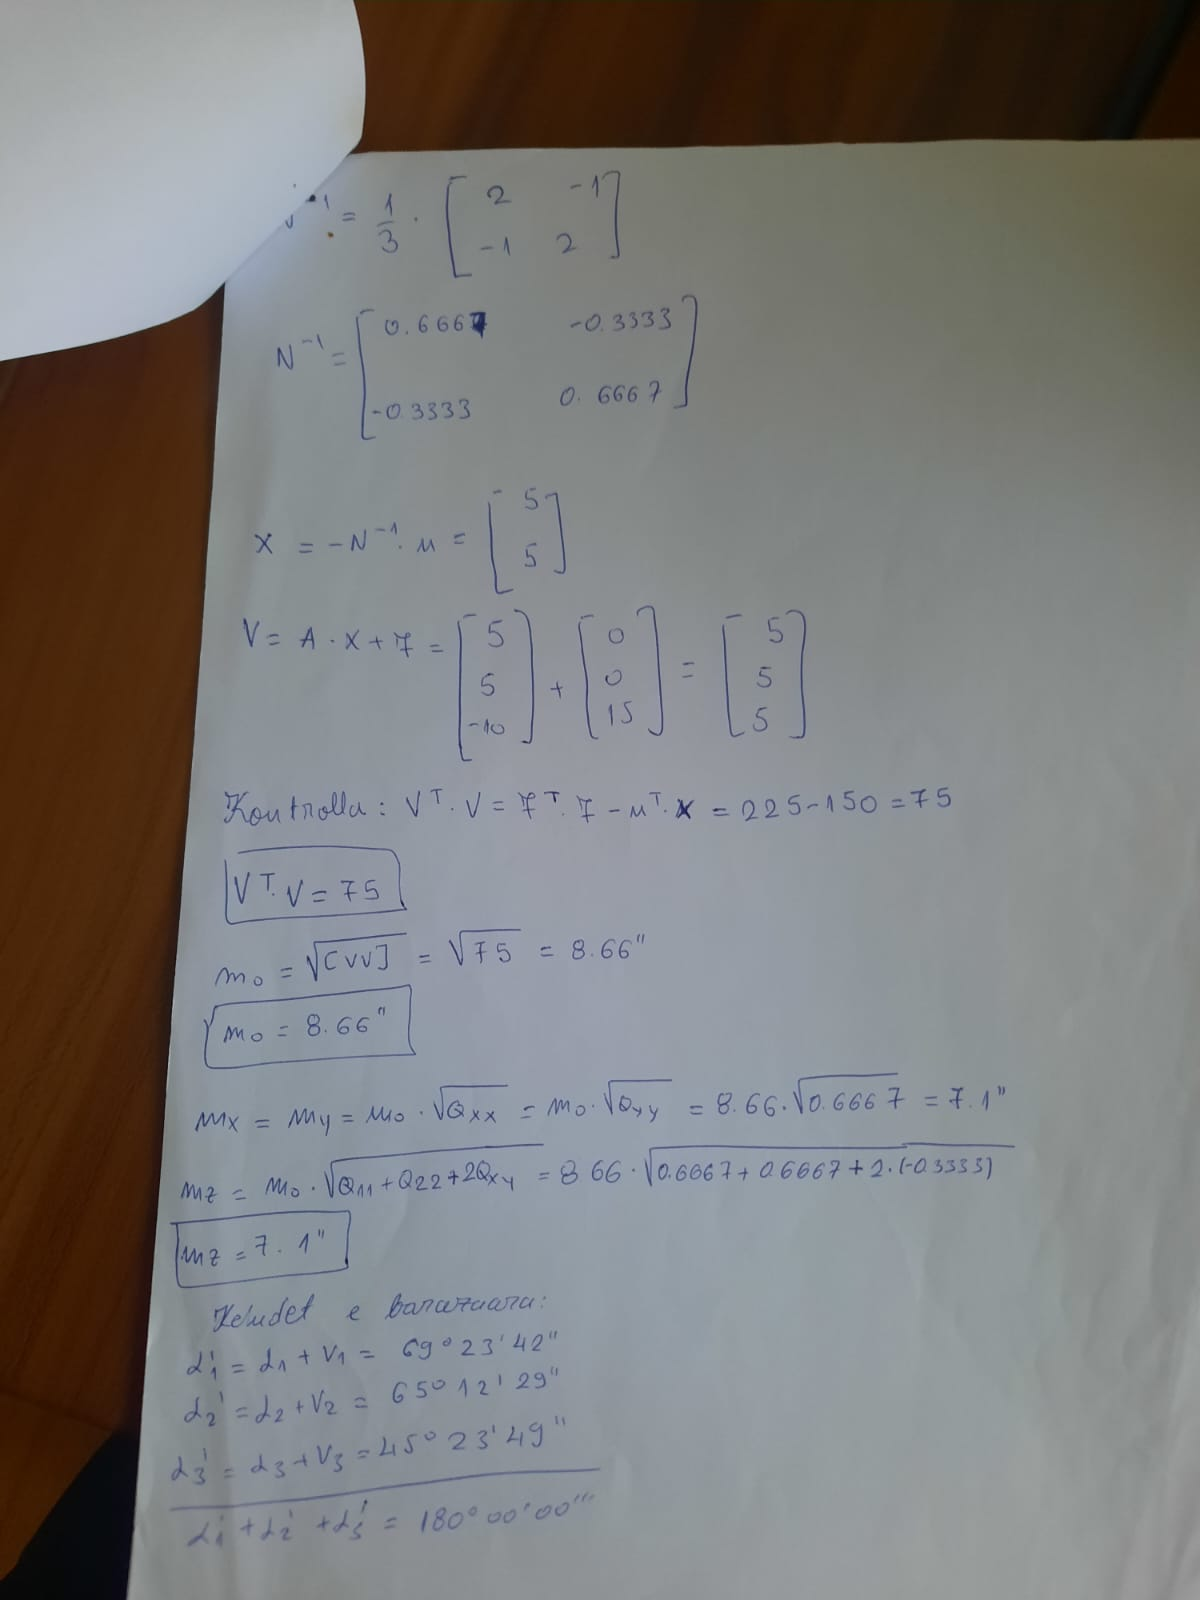 -1 = 1/3 · [2 -1
-1 2]
N⁻¹ = [0.6667 -0.3333
-0.3333 0.6667]
X = -N⁻¹ · u = [5
5]
V = A · X + f = [5 5 -10] + [0 0 15] = [5 5 5]
Kontrolla: Vᵀ · V = fᵀ · f - uᵀ · X = 225-150 = 75
Vᵀ · V = 75
m₀ = √[vv] = √75 = 8.66"
m₀ = 8.66"
mx = my = m₀ · √Qxx = m₀ · √Qyy = 8.66 · √0.6667 = 7.1"
mz = m₀ · √Q11 + Q22 + 2Qxy = 8.66 · √0.6667 + 0.6667 + 2 · (-0.3333)
mz = 7.1"
Këndet e barazuara:
α₁' = α₁ + V₁ = 69° 23' 42"
α₂' = α₂ + V₂ = 65° 12' 29"
α₃' = α₃ + V₃ = 45° 23' 49"
α₁' + α₂' + α₃' = 180° 00' 00"